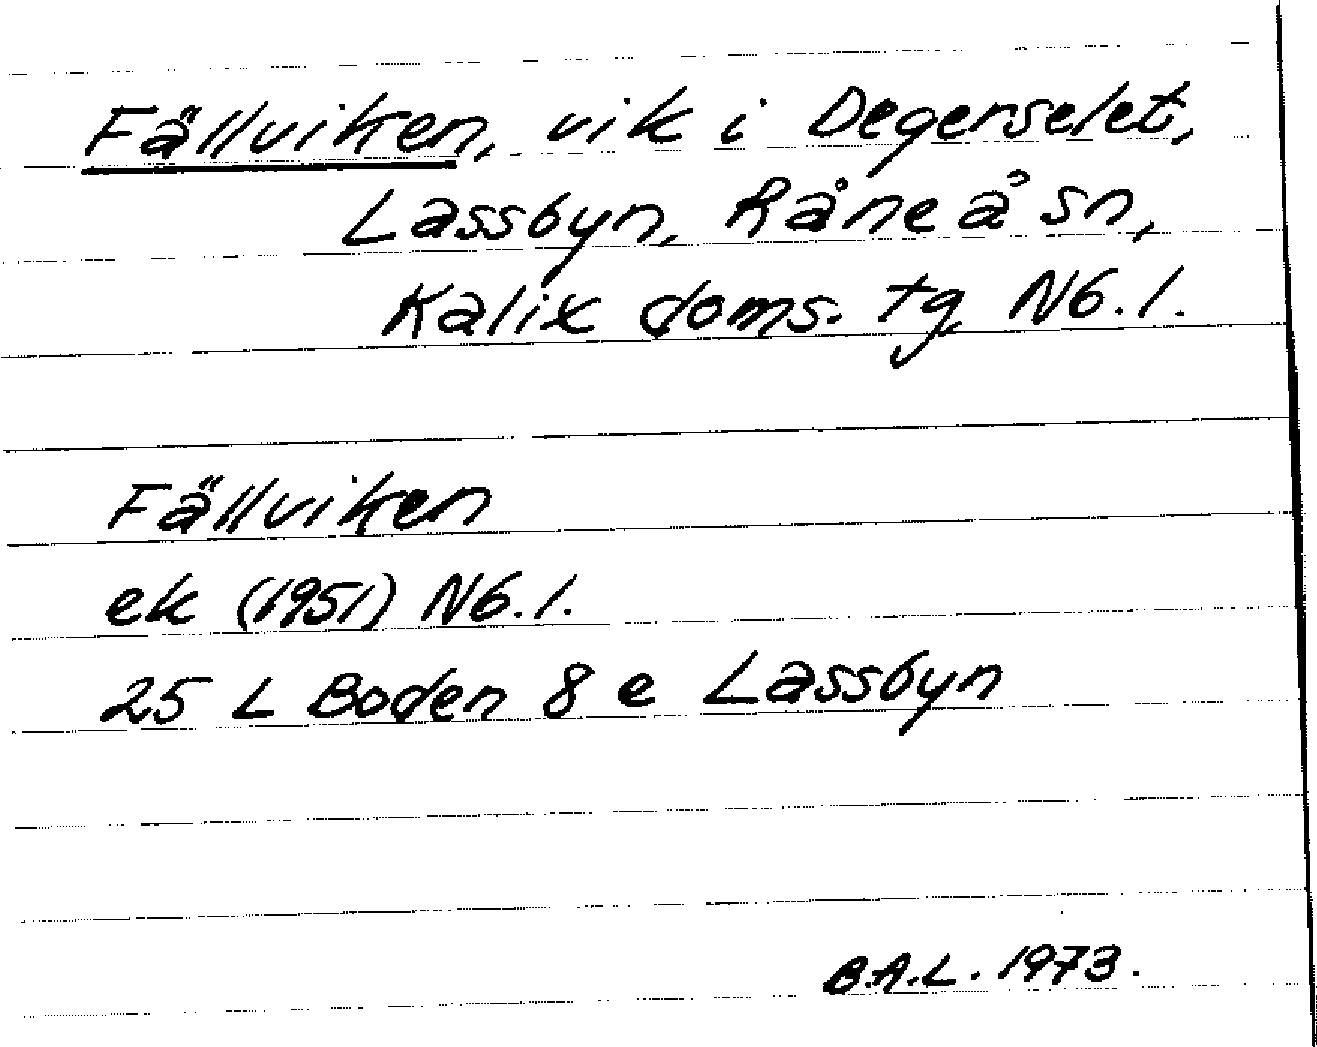 Fällviken, vik i Degerselet,
Lassbyn, Råneå sn,
Kalix doms. tg Nb. l.
Fällviken
ek (1951) Nb. l.
25 L Boden 8 e Lassbyn
B.A.L. 1973.